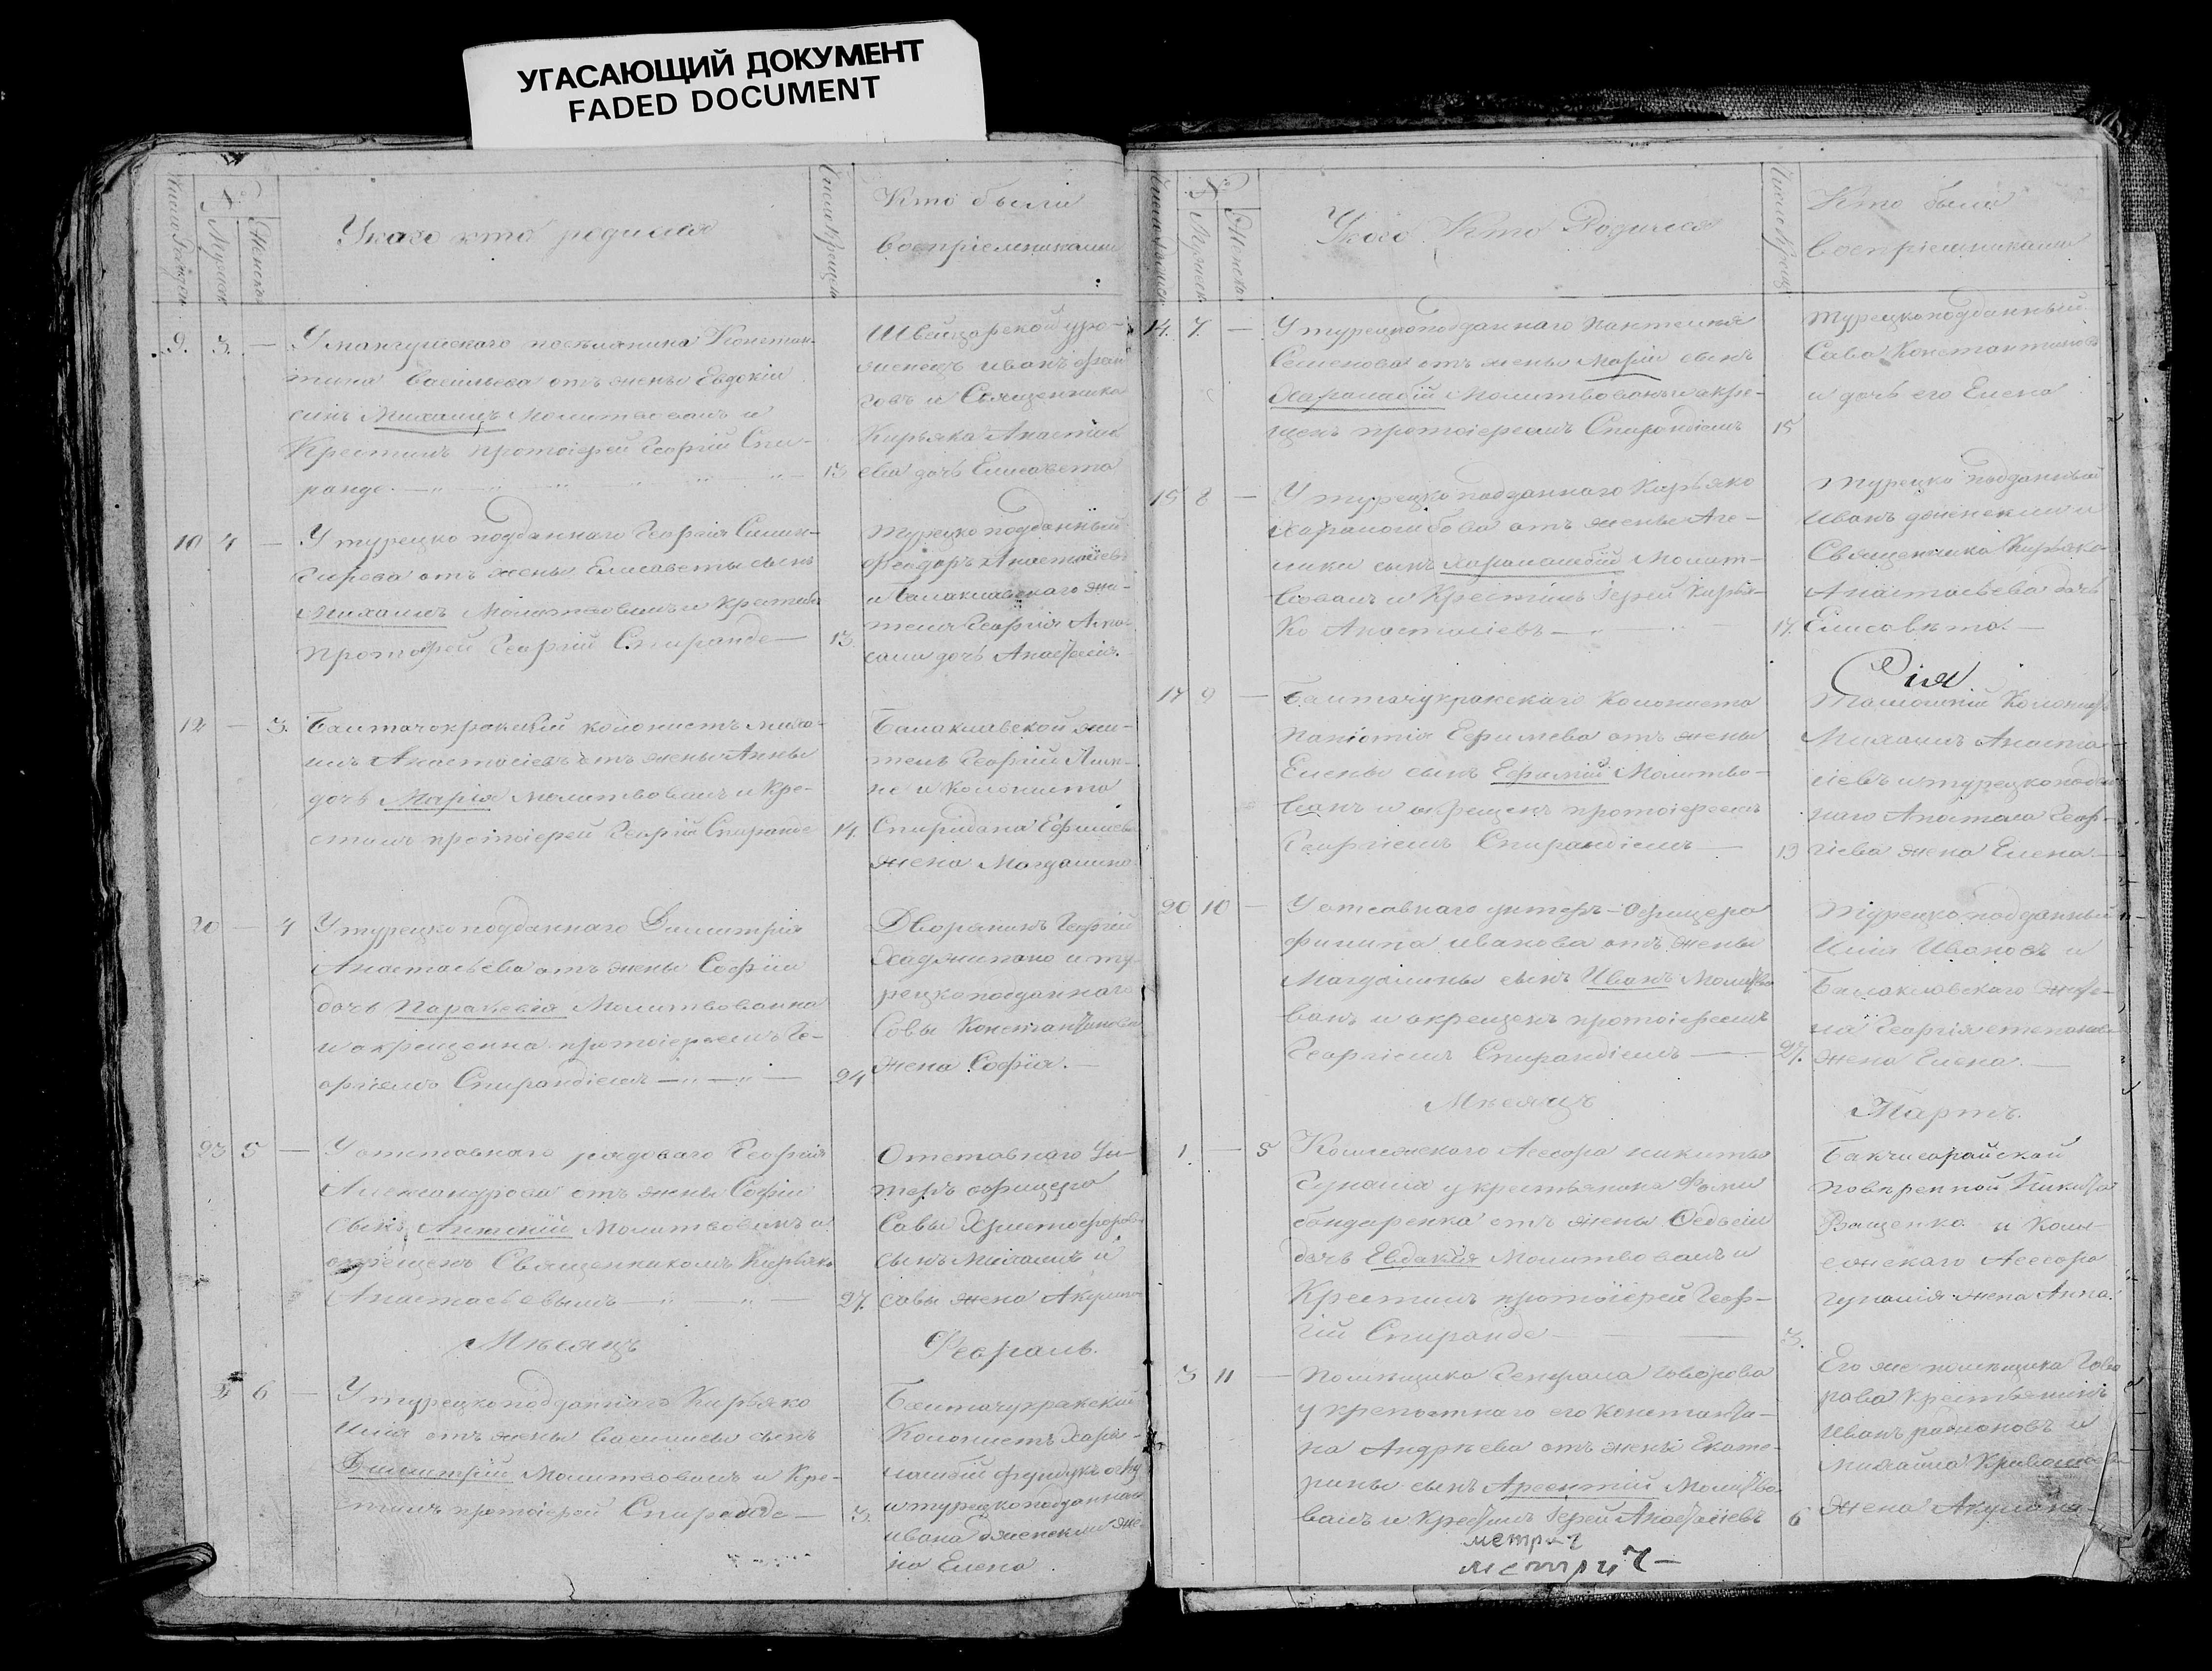 УГАСАЮЩИЙ ДОКУМЕНТ
FADED DOCUMENT
Число рожден.
№
Мужеск
Женска
У кого кто родился
Число Крещен
Кто были
воспріемниками
9. 3. —
У мангушскаго поселянина Констан-
тина Васильева отъ жены Евдокіи
сынъ Михаилъ Молитвовалъ и
Крестилъ протоіерей Георгій Спи-
ранде
13
Швейцарской уро-
женецъ иванъ
говъ и Священника
Кирьяка Анастас
ева дочь Елисавета
10 4 —
У турецко подданнаго Георгія
отъ жены Елисаветы сынъ
Михаилъ Молитвовалъ и крестилъ
протоіерей Георгій Спиранде —
13
Турецко подданный
Феодоръ Анастасіевъ
и балаклавскаго жи-
теля Георгія
дочь Анастасія.
12 — 3.
колонистъ миха-
илъ Анастасіевъ отъ жены Анны
дочь Марія молитвовалъ и Кре-
стилъ протоіерей Георгій Спиранде
14.
Балаклавской жи-
тель Георгій
и Колониста
Спиридона Ефимева
жена Магдалина
20 — 4
У турецкоподданнаго Димитрія
Анастасьева отъ жены Софіи
дочь Параскевія Молитвованна
и окрещенна протоіереемъ Ге-
оргіемъ Спирандіемъ
24
Дворянинъ Георгій
и ту-
рецкоподданнаго
Савы Константинова
жена Софія. —
23 5 —
У отставнаго рядоваго Георгія
Александрова отъ жены Софіи
сынъ Молитвованъ и
окрещенъ Священникомъ Кирьяко
Анастасьевымъ
27.
Отставнаго Ун-
теръ офицера
Савы Христофорова
сынъ Михаилъ и
савы жена
Мѣсяцъ
Февраль.
2 6 —
У турецкоподданнаго Кирьяко
Илія отъ жены Василисы сынъ
Димитрій Молитвовалъ и Кре-
стилъ протоіерей Спиранде —
3.
Колонистъ Харла-
мпій
и турецкоподданнаго
ивана же-
на Елена
Число рожден
№
Мужеск
Женска
У кого Кто Родился
Число Крещ
Кто были
воспріемниками
14. 7. —
У турецкоподданнаго Пантелия
Семенова отъ жены Маріи сынъ
Харалампій Молитвованъ и окре-
щенъ протоіереемъ Спирандіемъ
15
Турецкоподданный
Сава Константиновъ
и дочь его Елена
15 8 —
У турецко подданнаго Кирьяко
Хараламбова отъ жены Аге-
лики сынъ Хараламбій Молит-
вовалъ и Крестилъ Іерей Кирья-
ко Анастасіевъ
17.
Турецко подданный
иванъ и
Священника Кирьяко
Анастасьева дочь
Елисавета. —
Сія
17 9 —
Колониста
Паніотія Ефимева отъ жены
Елены сынъ Ефимій Молитво-
ванъ и окрещенъ протоіереемъ
Георгіемъ Спирандіемъ —
19
Колонистъ
Михаилъ Анаста-
сіевъ и турецкоподда-
наго Апостола Геор-
гіева жена Елена —
20 10 —
У отставнаго унтеръ-офицера
филипа иванова отъ жены
Магдалины сынъ Иванъ Молитво-
ванъ и окрещенъ протоіереемъ
Георгіемъ Спирандіемъ —
27.
Турецко подданный
Илія Ивановъ и
Балаклавскаго жите-
ля Георгія степанова
жена Елена. —
Мѣсяцъ
Мартъ.
1. — 5
Коллежскаго Асесора никиты
у крестьянина Фомы
бондаренка отъ жены Ѳедосіи
дочь Евдокія Молитвовалъ и
Крестилъ протоіерей Геор-
гій Спиранде —
3.
Бакчисарайской
повѣренной Никита
Ващенко и Кол-
ежскаго Асесора
жена Анна.
3 11 —
Помѣщика Генерала Говорова
у крепостнаго его Константи-
на Андрѣева отъ жены Екате-
рины сынъ Арсентій Молитво-
валъ и Крестилъ Іерей Анастасіевъ
6
Его же помѣщика Гово-
рова Крестьянинъ
иванъ и
михаила
жена Акулина
метрич
метрич—